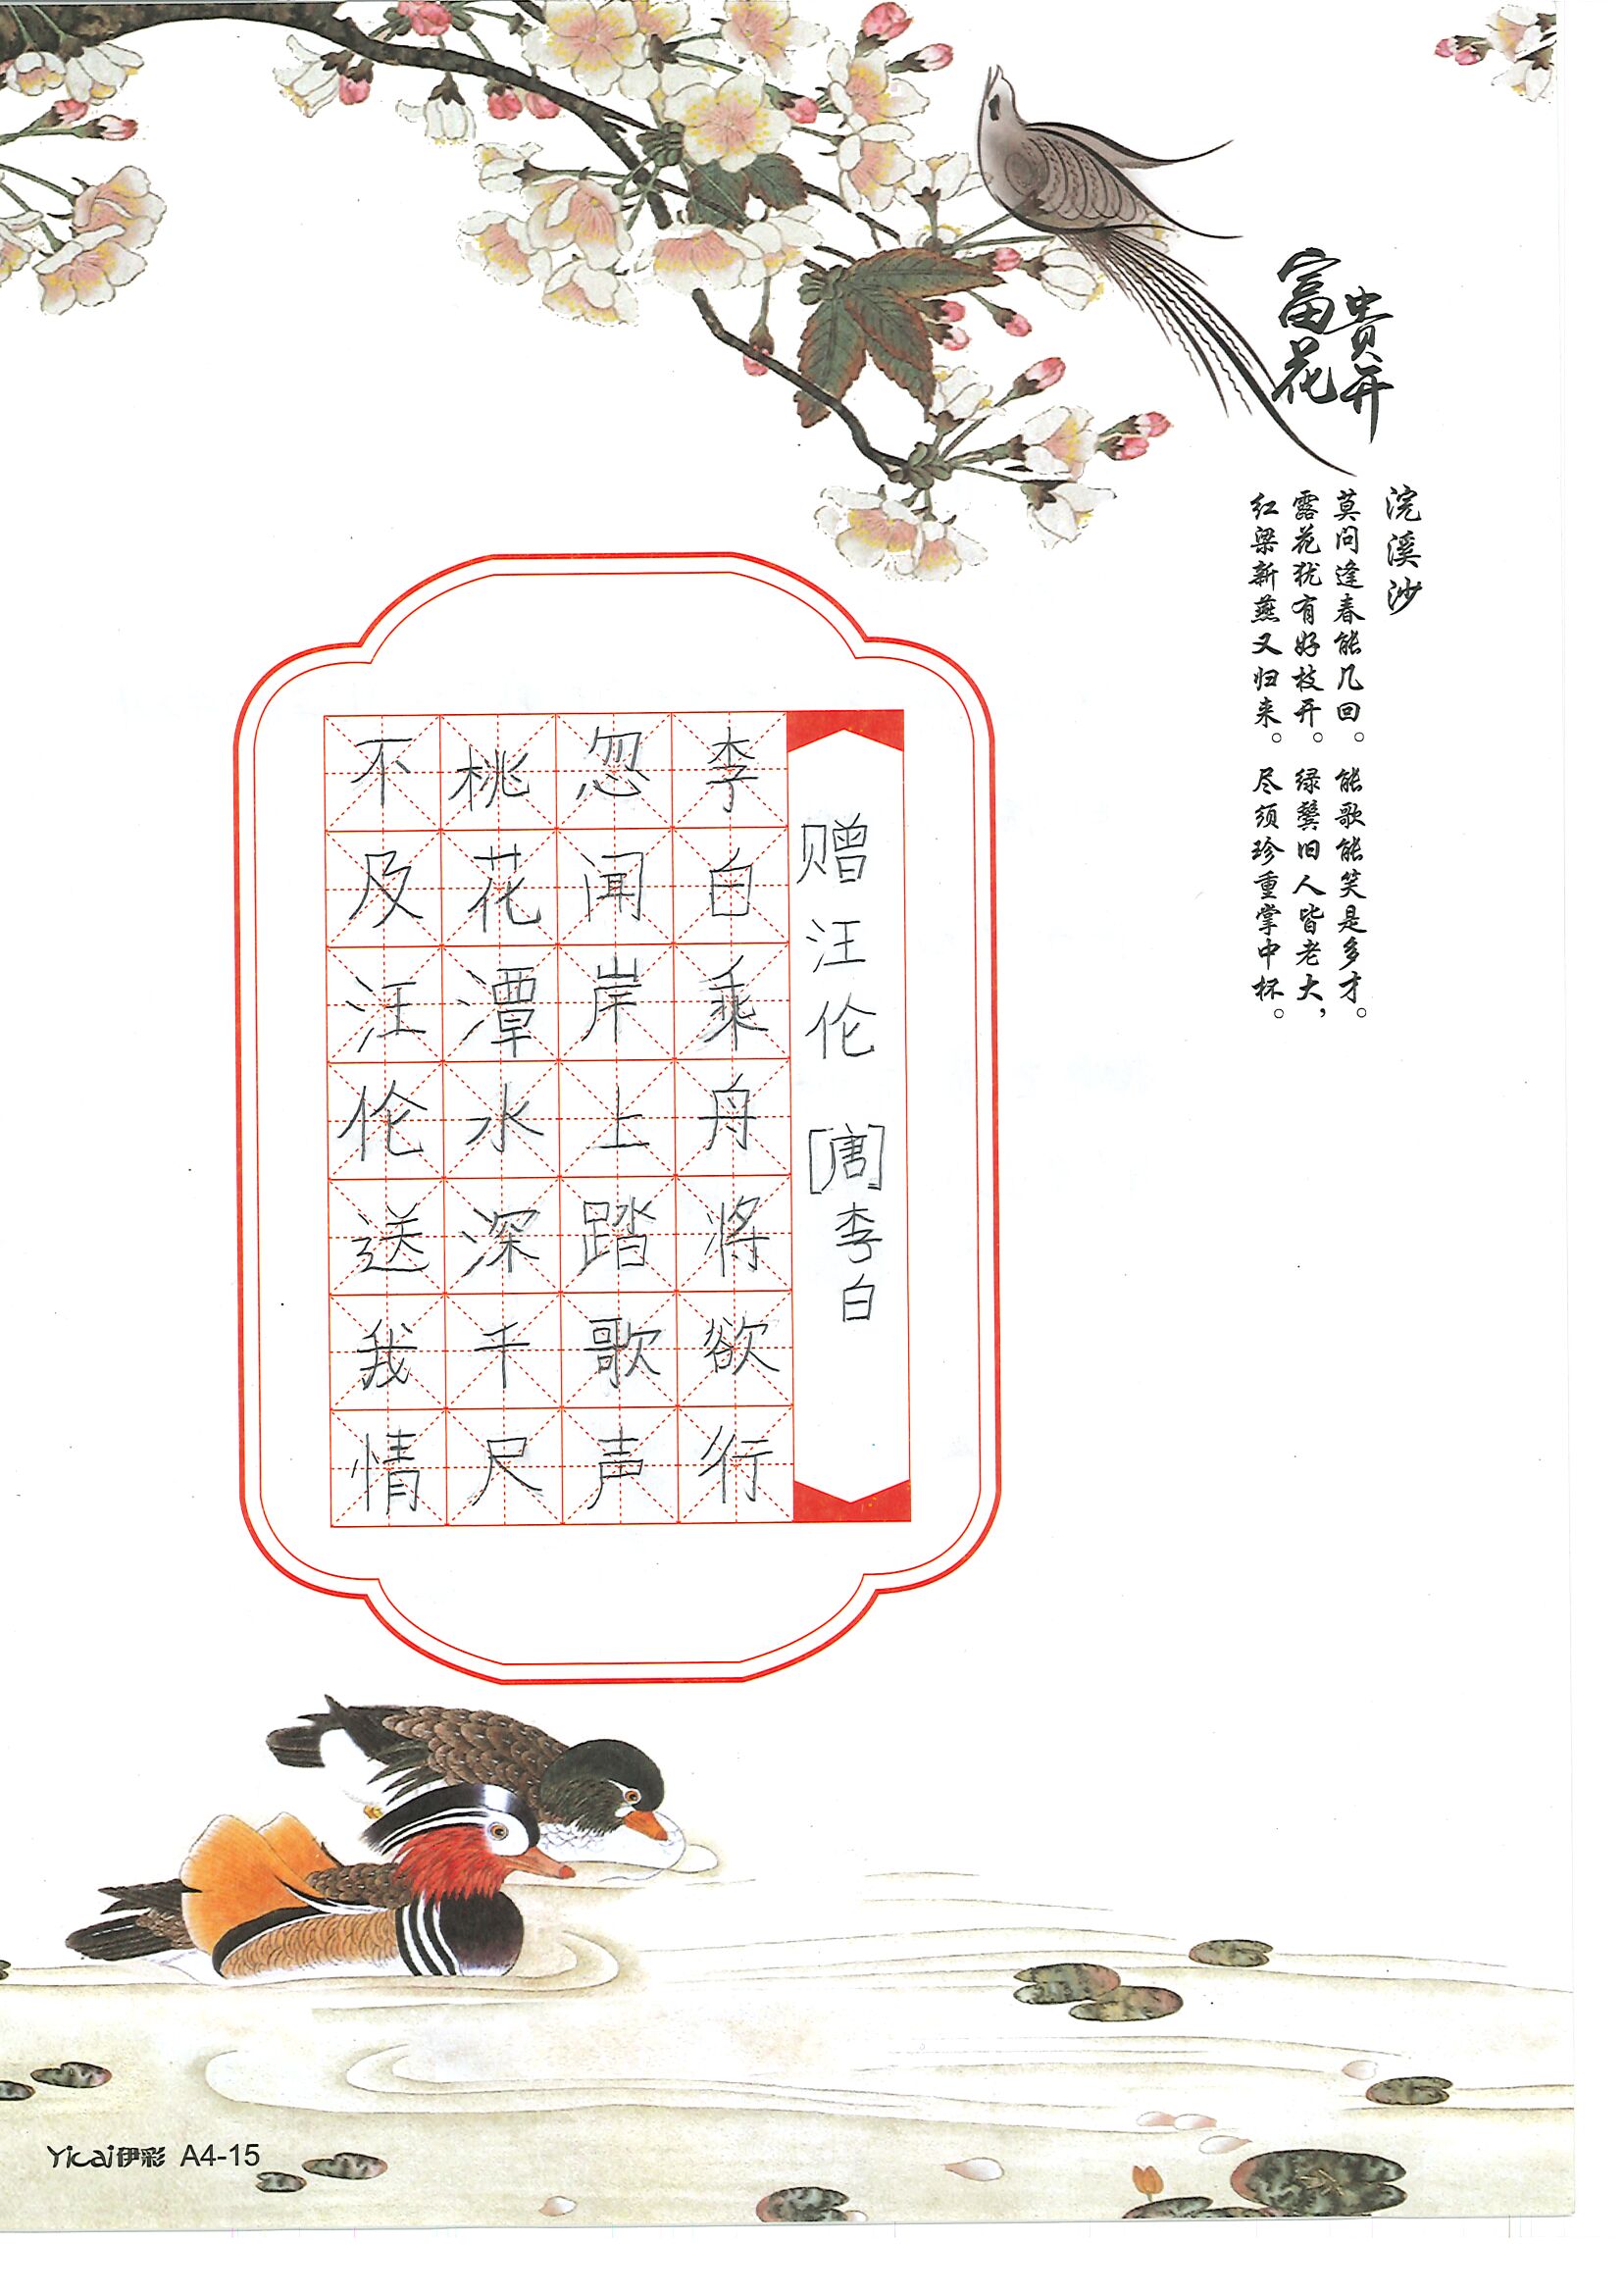 富贵
花开
浣溪沙
莫问逢春能几回。能歌能笑是多才。
露花犹有好枝开。绿鬓旧人皆老大，
红梁新燕又归来。尽须珍重掌中杯。
赠汪伦 [唐]李白
李白乘舟将欲行
忽闻岸上踏歌声
桃花潭水深千尺
不及汪伦送我情
Yicai伊彩 A4-15